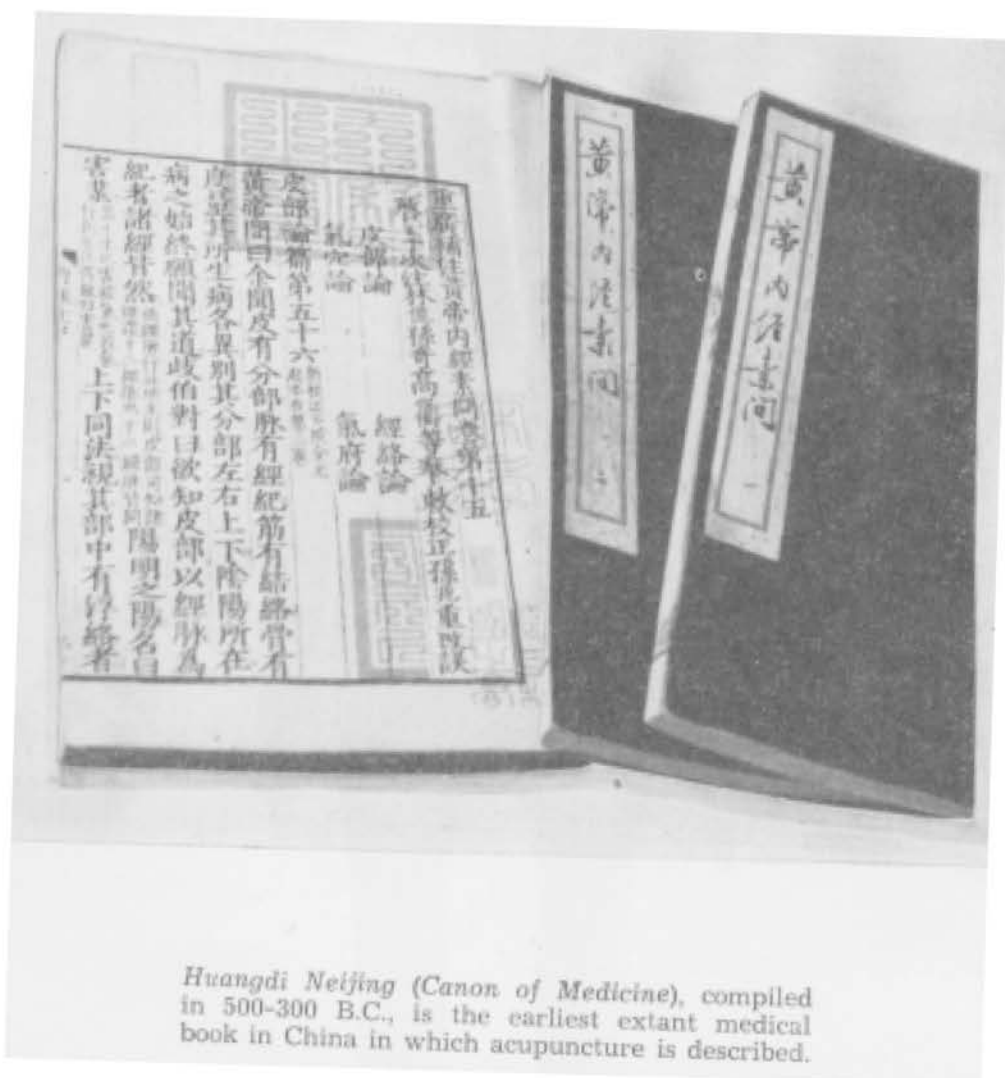 重廣補註黃帝內經素問卷第十五
林億孫奇高保衡等奉敕校正孫兆重改誤
皮部論 經絡論
氣穴論 氣府論
皮部論篇第五十六
黃帝問曰余聞皮有分部脉有經紀筋有結絡骨有
度量其所生病各異別其分部左右上下陰陽所在
病之始終願聞其道歧伯對曰欲知皮部以經脉為
紀者諸經皆然 陽明之陽名曰
害蜚 上下同法視其部中有浮絡者
黃帝內經素問
黃帝內經素問 一
Huangdi Neijing (Canon of Medicine), compiled
in 500-300 B.C., is the earliest extant medical
book in China in which acupuncture is described.